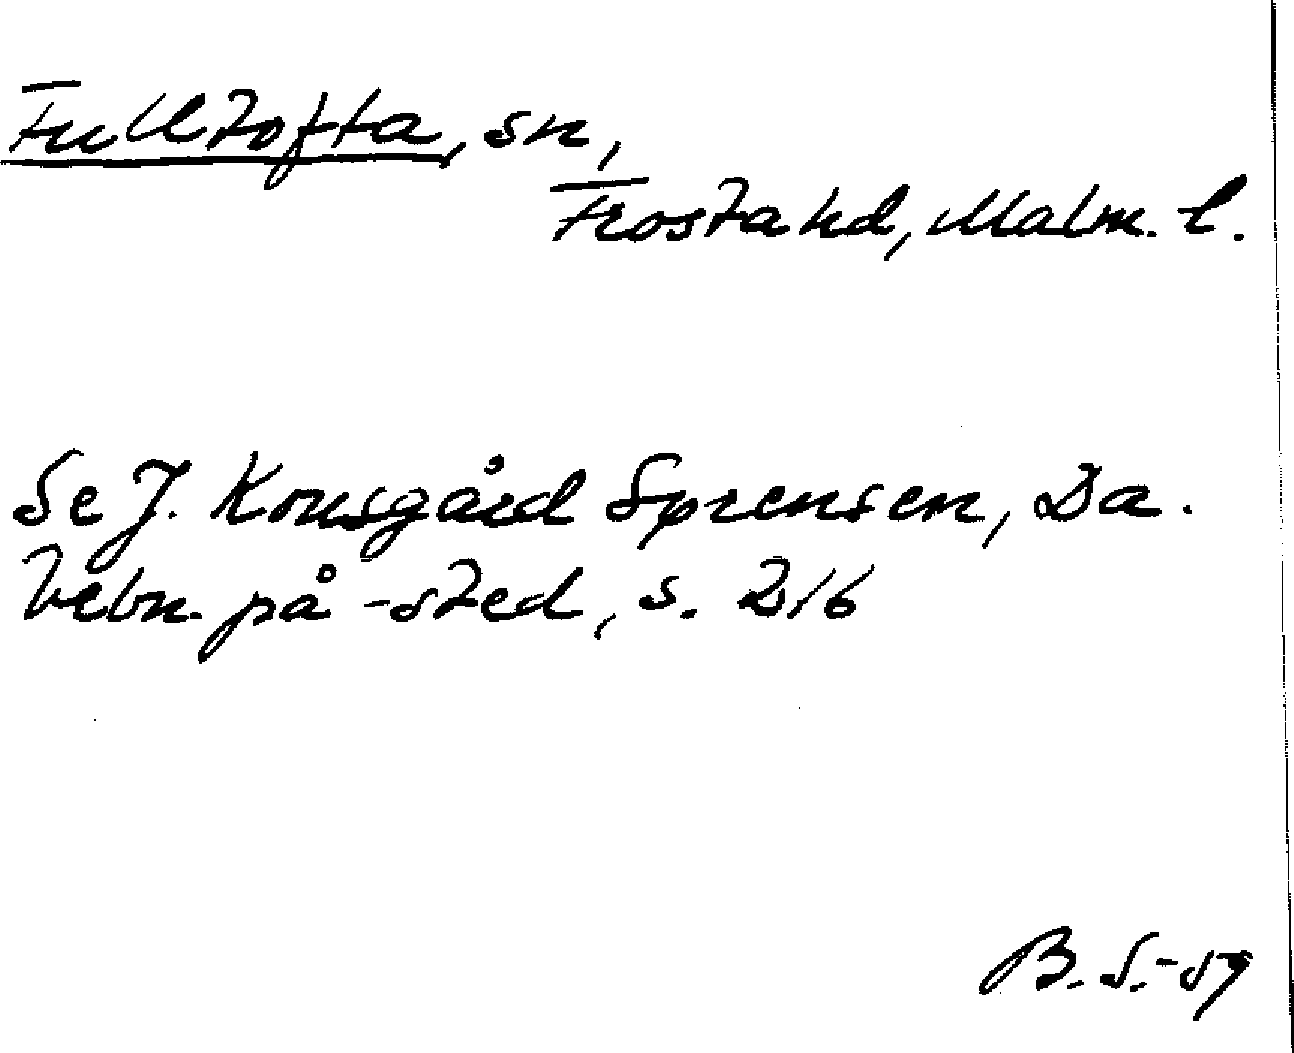 Fulltofta, sn,
Frosta hd, Malm. l.
Se J. Kousgård Sørensen, Da.
bebn. på -sted, s. 216
B. S.-59